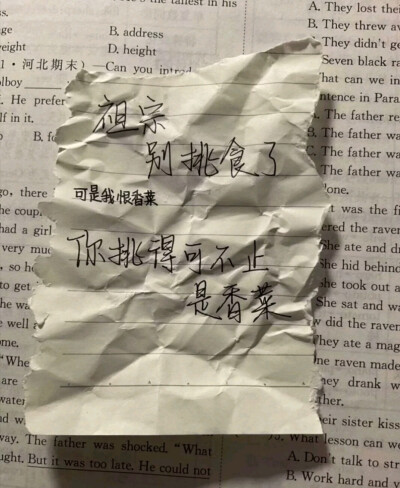 llest in his
ge
B. address
eight
D. height
1·河北期末)—Can you introd
lboy
. He prefer
lf in it.
go, there
the coup
had a girl
very muc
, so he
to get
e well
me.
"Whe
are
water
and w
way. The father was shocked. "What
ught. But it was too late. He could not
祖宗
别挑食了
可是我恨香菜
你挑得可不止
是香菜
A. They lost thei
B. They threw aw
They didn't ge
Seven black ra
hat can we in
ntence in Para
The father re
The father wa
The father wa
The father
lone.
t was the fi
ered the raven
She ate and dr
She hid behind
She took out a
She sat and wa
w did the raven
They ate a mag
ne raven made
ey drank w
ther.
eir sister kiss
What lesson can we
A. Don't talk to str
B. Work hard and y